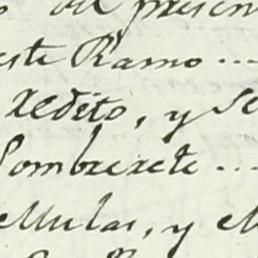 del presen
este Ramo ...
Xedito, y se
Sombrerete ...
ellulas, y el